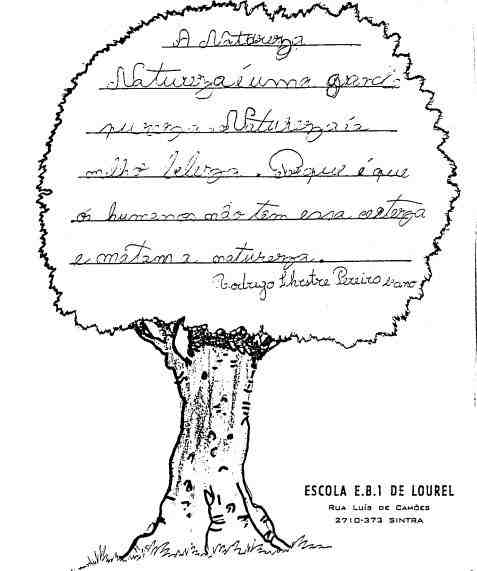 A Natureza
Natureza é uma grand
pureza. Natureza é a
milhó beleza. Porque é que
os humanos não têm essa certeza
e matam a natureza.
Rodrigo Silvestre Pereira
ESCOLA E.B.1 DE LOUREL
RUA LUÍS DE CAMÕES
2710-373 SINTRA